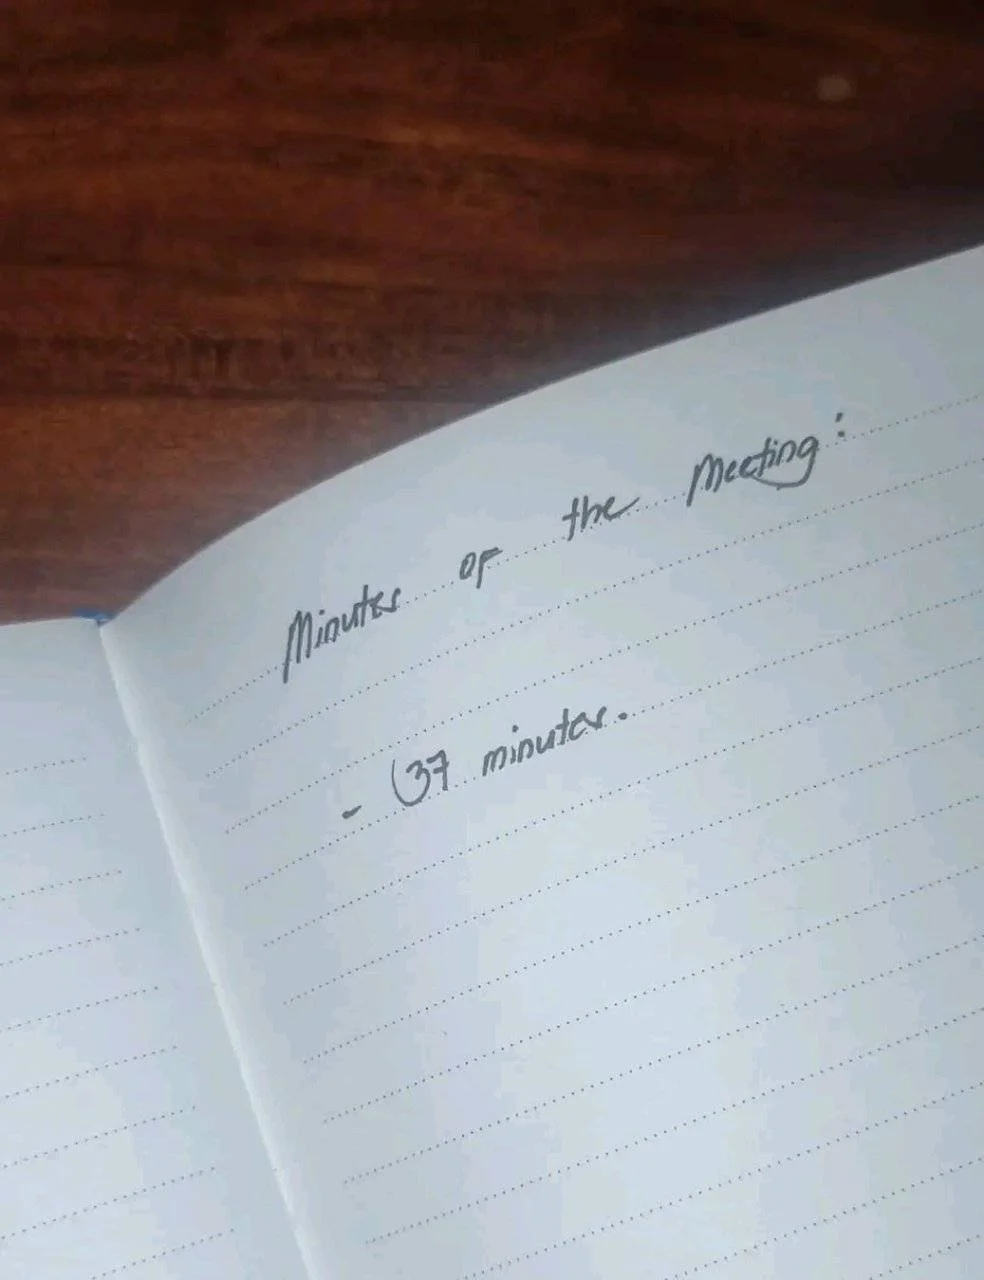 Minutes of the Meeting:
- 37 minutes.